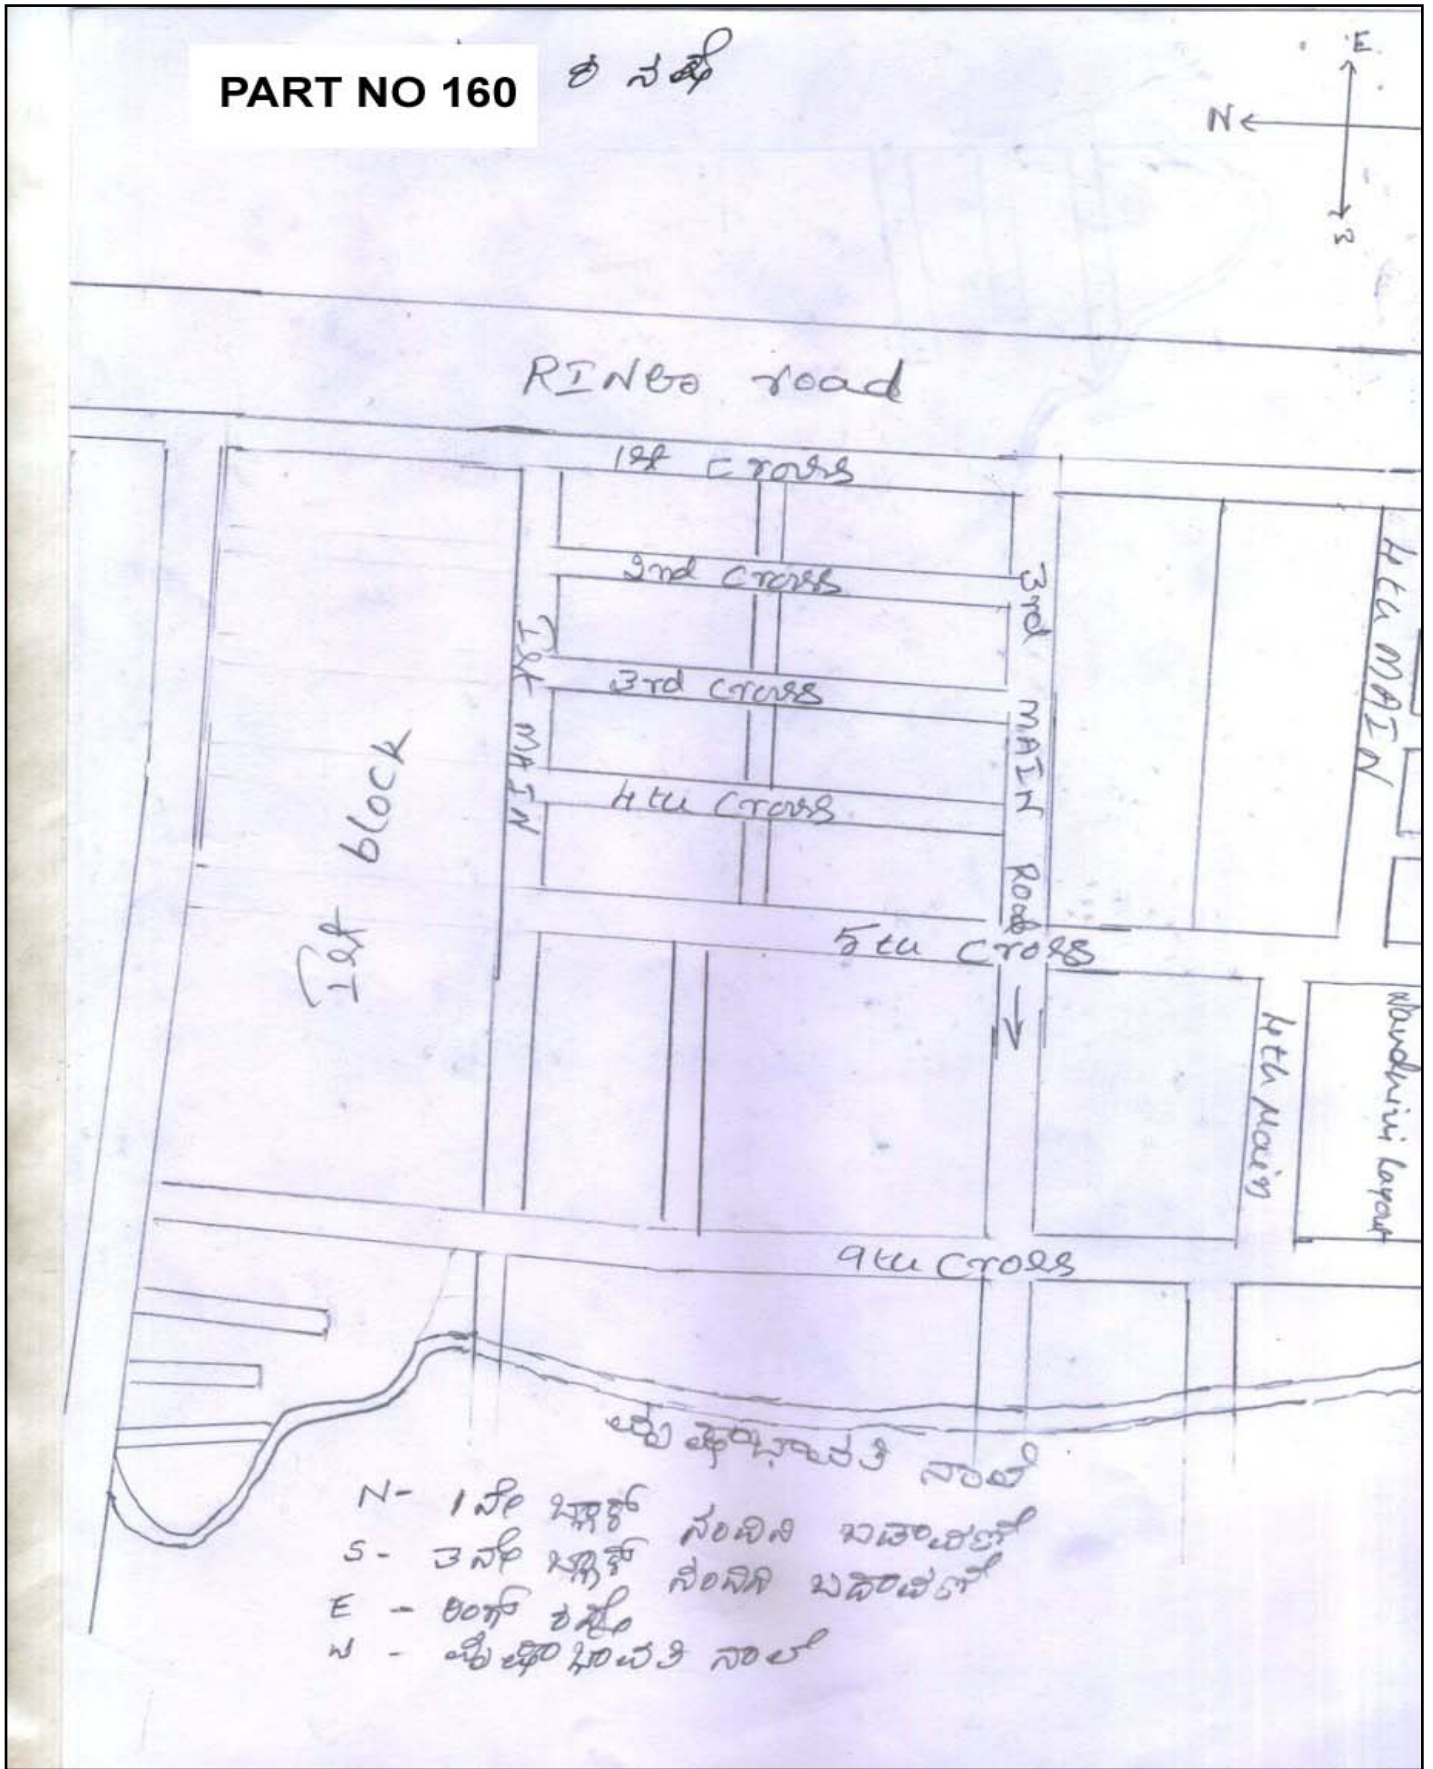 PART NO 160
ನಕ್ಷೆ
E
N
W
RING road
1st Cross
2nd Cross
3rd Cross
4th Cross
5th Cross
9th Cross
Ist MAIN
3rd MAIN Road
4th MAIN
4th Main
Ist block
Nandhini Layout
ವೃಷಭಾವತಿ ನಾಲೆ
N- 1ನೇ ಬ್ಲಾಕ್ ನಂದಿನಿ ಬಡಾವಣೆ
S- 3ನೇ ಬ್ಲಾಕ್ ನಂದಿನಿ ಬಡಾವಣೆ
E - ರಿಂಗ್ ರಸ್ತೆ
W - ವೃಷಭಾವತಿ ನಾಲೆ